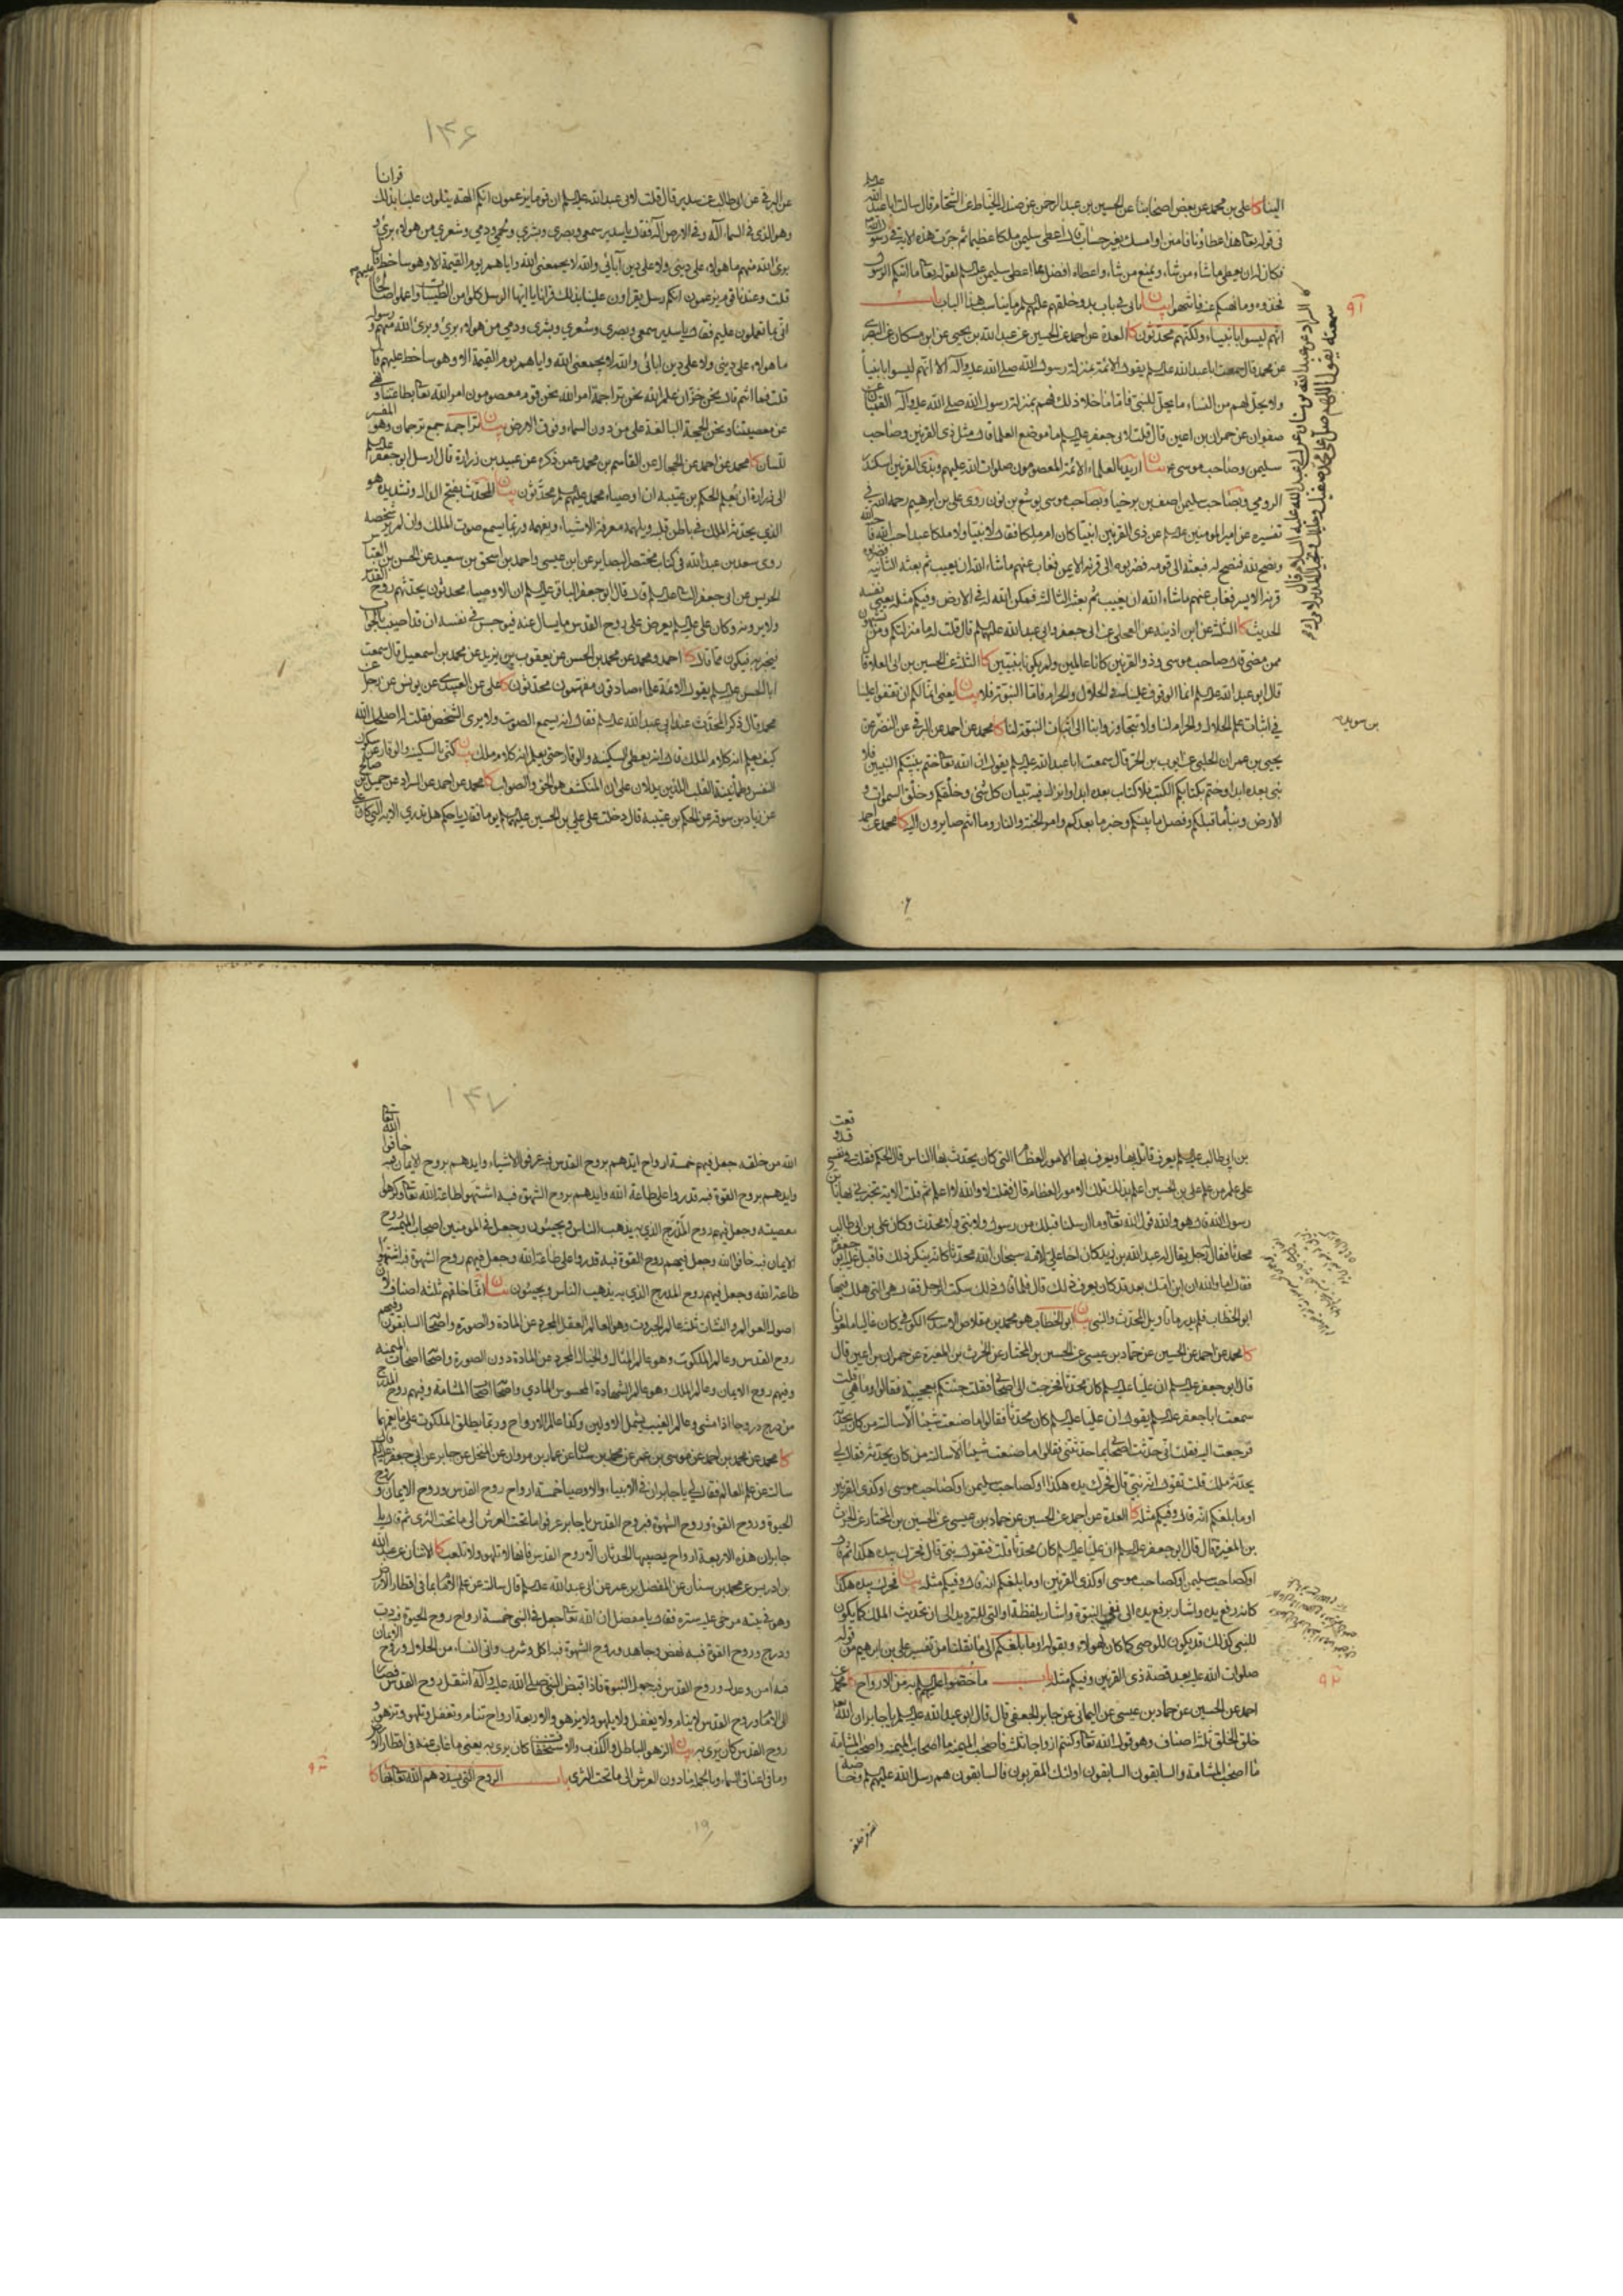 الينا كا علي بن محمد عن بعض اصحابنا عن الحسين بن عبد الرحمن عن صندل الخياط عن الشحام قال سالت ابا عبد الله عليه السلم
في قوله تعا هذا عطاؤنا فامنن او امسك بغير حساب قال اعطى سليمن ملكا عظيما ثم جرت هذه الاية في رسول الله
فكان له ان يعطي ما شاء من شاء ويمنع من شاء واعطاه افضل مما اعطى سليمن عليه السلم لقوله تعا ما اتيكم الرسول
فخذوه وما نهيكم عنه فانتهوا بيان ياتي في باب بدو خلقهم عليهم السلم ما يناسب هذا الباب باب
٩١
انهم ليسوا بانبياء ولكنهم محدثون كا العدة عن احمد عن الحسين عن عبد الله بن يحيى عن ابن مسكان عن البصري
عن محمد قال سمعت ابا عبد الله عليه السلم يقول الائمة بمنزلة رسول الله صلى الله عليه وآله الا انهم ليسوا بانبيا
ولا يحل لهم من النساء ما يحل للنبي فاما ما خلا ذلك فهم بمنزلة رسول الله صلى الله عليه وآله كا القميان عن
صفوان عن حمران بن اعين قال قلت لابي جعفر عليه السلم ما موضع العلما قال مثل ذي القرنين وصاحب
سليمن وصاحب موسى ع بيان اريد بالعلماء الائمة المعصومون صلوات الله عليهم وبذي القرنين اسكندر
الرومي وبصاحب سليمن اصف بن برخيا وبصاحب موسى يوشع بن نون روى علي بن ابرهيم رحمه الله في
تفسيره عن امير المومنين عليه السلم عن ذي القرنين انبيا كان ام ملكا فقال لا نبيا ولا ملكا عبد احب الله فاحبه الله
ونصح لله فنصح له فبعثه الى قومه فضربوه الى قرنه الايمن فغاب عنهم ما شاء الله ان يغيب ثم بعثه الثانية فضربوه
قرنه الايسر فغاب عنهم ما شاء الله ان يغيب ثم بعثه الثالثة فمكن الله له في الارض وفيكم مثله يعني نفسه
الحديث كا الثلثة عن ابن اذينة عن العجلي عن ابي جعفر وابي عبد الله عليهما السلم قال قلت له ما منزلتكم ومن تشبهون
ممن مضى قال صاحب موسى وذو القرنين كانا عالمين ولم يكونا نبيين كا الثلثة عن الحسين بن ابي العلا قال
قال ابو عبد الله عليه السلم انما الوقوف علينا في الحلال والحرام فاما النبوة فلا بيان يعني انما لكم ان تقفوا علينا
في اثبات علم الحلال والحرام لنا ولا تتجاوزوا بنا الى اثبات النبوة لنا كا محمد عن احمد عن البرقي عن النضر عن
بن سويد
يحيى بن عمران الحلبي عن ايوب بن الحر قال سمعت ابا عبد الله عليه السلم يقول ان الله تعا ختم بنبيكم النبيين فلا
نبي بعده ابدا وختم بكتابكم الكتب فلا كتاب بعده ابدا وانزل فيه تبيان كل شئ وخلقكم وخلق السموات و
الارض ونبأ ما قبلكم وفصل ما بينكم وخبر ما بعدكم وامر الجنة والنار وما انتم صايرون اليه كا محمد عن احمد
١٤٦
عن البرقي عن ابي طالب عن سدير قال قلت لابي عبد الله عليه السلم ان قوما يزعمون انكم الهة يتلون علينا بذلك قرانا
وهو الذي في السماء اله وفي الارض اله فقال يا سدير سمعي وبصري وبشري ولحمي ودمي وشعري من هؤلاء بري و
بري الله منهم ما هؤلاء على ديني ولا على دين آبائي والله لا يجمعني الله واياهم يوم القيمة الا وهو ساخط عليهم قال
قلت وعندنا قوم يزعمون انكم رسل يقرأون علينا بذلك قرانا يا ايها الرسل كلوا من الطيبات واعملوا صالحا
اني بما تعملون عليم فقال يا سدير سمعي وبصري وشعري وبشري ودمي من هؤلاء بري وبري الله منهم ورسوله
ما هؤلاء على ديني ولا على دين ابائي والله لا يجمعني الله واياهم يوم القيمة الا وهو ساخط عليهم قال
قلت فما انتم قال نحن خزان علم الله نحن تراجمة امر الله نحن قوم معصومون امر الله تعا بطاعتنا ونهى
عن معصيتنا ونحن الحجة البالغة على من دون السماء وفوق الارض بيان تراجمة جمع ترجمان وهو المفسر
للسان كا محمد عن احمد عن الحجال عن القاسم بن محمد عمن ذكره عن عبيد بن زرارة قال ارسل ابو جعفر عليه السلم
الى زرارة ان يعلم الحكم بن عتيبة ان اوصياء محمد عليهم السلم محدثون بيان المحدث بفتح الدال وتشديده هو
الذي يحدثه الملك في باطن قلبه ويلهمه معرفة الاشياء ويفهمه وربما يسمع صوت الملك وان لم ير شخصه
روى سعد بن عبد الله في كتاب مختصر البصاير عن ابن عيسى واحمد بن اسحق بن سعيد عن الحسن بن العباس
الحريش عن ابي جعفر الثاني عليه السلم قال قال ابو جعفر الباقر عليه السلم ان الاوصياء محدثون يحدثهم روح القدس
ولا يرونه وكان علي عليه السلم يعرض على روح القدس ما يسال عنه فيوجس في نفسه ان قد اصبت بالجواب
فيخبر به فيكون كما قال كا احمد ومحمد عن محمد بن الحسن عن يعقوب بن يزيد عن محمد بن اسمعيل قال سمعت
ابا الحسن عليه السلم يقول الائمة علماء صادقون مفهمون محدثون كا علي عن العبيدي عن يونس عن رجل عن
محمد قال ذكر المحدث عند ابي عبد الله عليه السلم فقال انه يسمع الصوت ولا يرى الشخص فقلت له اصلحك الله
كيف يعلم انه كلام الملك قال انه يعطى السكينة والوقار حتى يعلم انه كلام ملك بيان كنى بالسكينة والوقار عن سكون
النفس وطمانينة القلب الذين يدلان على ان المنكشف هو الحق والصواب كا محمد عن احمد عن السراد عن جميل بن صالح
عن زياد بن سوقة عن الحكم بن عتيبة قال دخلت على علي بن الحسين عليهما السلم يوما فقال يا حكم هل تدري الاية التي كان علي
بن ابي طالب عليه السلم يعرف قاتله بها ويعرف بها الامور العظام التي كان يحدث بها الناس قال الحكم فقلت في نفسي قد وقعت
على علم من علم علي بن الحسين اعلم بذلك تلك الامور العظام قال فقلت لا والله لا اعلم ثم قلت الاية تخبرني بها يا بن
رسول الله قال هو والله قول الله تعا وما ارسلنا قبلك من رسول ولا نبي ولا محدث وكان علي بن ابي طالب
محدثا فقال له رجل يقال له عبد الله بن زيد كان اخا علي لامه سبحان الله محدثا كانه ينكر ذلك فاقبل عليه ابو جعفر
فقال اما والله ان ابن امك بعد قد كان يعرف ذلك قال فلما قال ذلك سكت الرجل فقال هي التي هلك فيها
ابو الخطاب فلم يدر ما تاويل المحدث والنبي بيان ابو الخطاب هو محمد بن مقلاص الاسدي الكوفي كان غاليا ملعونا
كا محمد عن احمد عن الحسين عن حماد بن عيسى عن الحسين بن المختار عن الحرث بن المغيرة عن حمران بن اعين قال
قال ابو جعفر عليه السلم ان عليا عليه السلم كان محدثا فخرجت الى اصحابي فقلت جئتكم بعجيبة فقالوا وما هي قلت
سمعت ابا جعفر عليه السلم يقول ان عليا عليه السلم كان محدثا فقالوا ما صنعت شيئا الا سالته من كان يحدثه
فرجعت اليه فقلت اني حدثت اصحابي بما حدثتني فقالوا ما صنعت شيئا الا سالته من كان يحدثه فقال لي
يحدثه ملك قلت تقول انه نبي قال فحرك يده هكذا او كصاحب سليمن او كصاحب موسى او كذي القرنين
او ما بلغكم انه قال وفيكم مثله كا العدة عن احمد عن الحسين عن حماد بن عيسى عن الحسين بن المختار عن الحرث
بن المغيرة قال قال ابو جعفر عليه السلم ان عليا عليه السلم كان محدثا قلت فتقول نبي قال فحرك يده هكذا ثم قال
او كصاحب سليمن او كصاحب موسى او كذي القرنين او ما بلغكم انه قال وفيكم مثله بيان فحرك يده هكذا
كانه رفع يده واشار برفع يده الى نفي النبوة واشار بلفظة او التي للترديد الى ان تحديث الملك كما يكون
للنبي كذلك قد يكون للوصي كما كان لهؤلاء وبقوله او ما بلغكم الى ما نقلنا من تفسير علي بن ابرهيم من قوله
صلوات الله عليه بعد قصة ذي القرنين وفيكم مثله باب ما خصوا عليهم السلم به من الارواح كا محمد عن
٩٢
احمد عن الحسين عن حماد بن عيسى عن اليماني عن جابر الجعفي قال قال ابو عبد الله عليه السلم يا جابر ان الله تعا
خلق الخلق ثلثة اصناف وهو قول الله تعا وكنتم ازواجا ثلثة فاصحب الميمنة ما اصحاب الميمنة واصحب المشامة
ما اصحب المشامة والسابقون السابقون اولئك المقربون فالسابقون هم رسل الله عليهم السلم وخاصة
١٤٧
الله من خلقه جعل فيهم خمسة ارواح ايدهم بروح القدس فبه عرفوا الاشياء وايدهم بروح الايمان فبه خافوا الله تعا
وايدهم بروح القوة فبه قدروا على طاعة الله وايدهم بروح الشهوة فبه اشتهوا طاعة الله تعا وكرهوا
معصيته وجعل فيهم روح المدرج الذي به يذهب الناس ويجيئون وجعل في المومنين اصحاب الميمنة روح
الايمان فبه خافوا الله وجعل فيهم روح القوة فبه قدروا على طاعة الله وجعل فيهم روح الشهوة فبه اشتهوا
طاعة الله وجعل فيهم روح المدرج الذي به يذهب الناس ويجيئون بيان انما خلقهم ثلثة اصناف لان
اصول العوالم والنشات ثلث عالم الجبروت وهو العالم العقلي المجرد عن المادة والصورة واصحابها السابقون وفيهم
روح القدس وعالم الملكوت وهو عالم المثال والخيال المجرد عن المادة دون الصورة واصحابها اصحاب الميمنة
وفيهم روح الايمان وعالم الملك وهو عالم الشهادة المحسوس المادي واصحابها اصحاب المشامة وفيهم روح المدرج
من درج دروجا اذا مشى وعالم الغيب يشمل الاولين وكذا عالم الارواح وربما يطلق الملكوت على ما يعمهما
كا محمد عن محمد بن احمد عن موسى بن عمر عن محمد بن سنان عن عمار بن مروان عن المنخل عن جابر عن ابي جعفر عليه السلم قال
سالته عن علم العالم فقال لي يا جابر ان في الانبياء والاوصيا خمسة ارواح روح القدس وروح الايمان وروح
الحيوة وروح القوة وروح الشهوة فبروح القدس يا جابر عرفوا ما تحت العرش الى ما تحت الثرى ثم قال يا
جابر ان هذه الاربعة ارواح يصيبها الحدثان الا روح القدس فانها لا تلهو ولا تلعب كا الاثنان عن عبد الله
بن ادريس عن محمد بن سنان عن المفضل بن عمر عن ابي عبد الله عليه السلم قال سالته عن علم الامام بما في اقطار الارض
وهو في بيته مرخى عليه ستره فقال يا مفضل ان الله تعا جعل في النبي خمسة ارواح روح الحيوة فبه دب
ودرج وروح القوة فبه نهض وجاهد وروح الشهوة فبه اكل وشرب واتى النساء من الحلال وروح الايمان
فبه امن وعدل وروح القدس فبه حمل النبوة فاذا قبض النبي صلى الله عليه وآله انتقل روح القدس فصار
الى الامام وروح القدس لا ينام ولا يغفل ولا يلهو ولا يزهو والاربعة ارواح تنام وتغفل وتلهو وتزهو و
روح القدس كان يرى به بيان الزهو الباطل والكذب والاستخفاف كان يرى به يعني ما غاب عنه في اقطار الارض
وما في اعنان السماء وبالجملة ما دون العرش الى ما تحت الثرى باب الروح التي يسددهم الله تعا بها كا
٩٣